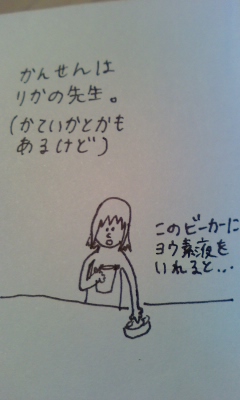 かんせんは
りかの先生。
(かていかとかも
あるけど)
このビーカーに
ヨウ素液を
いれると...